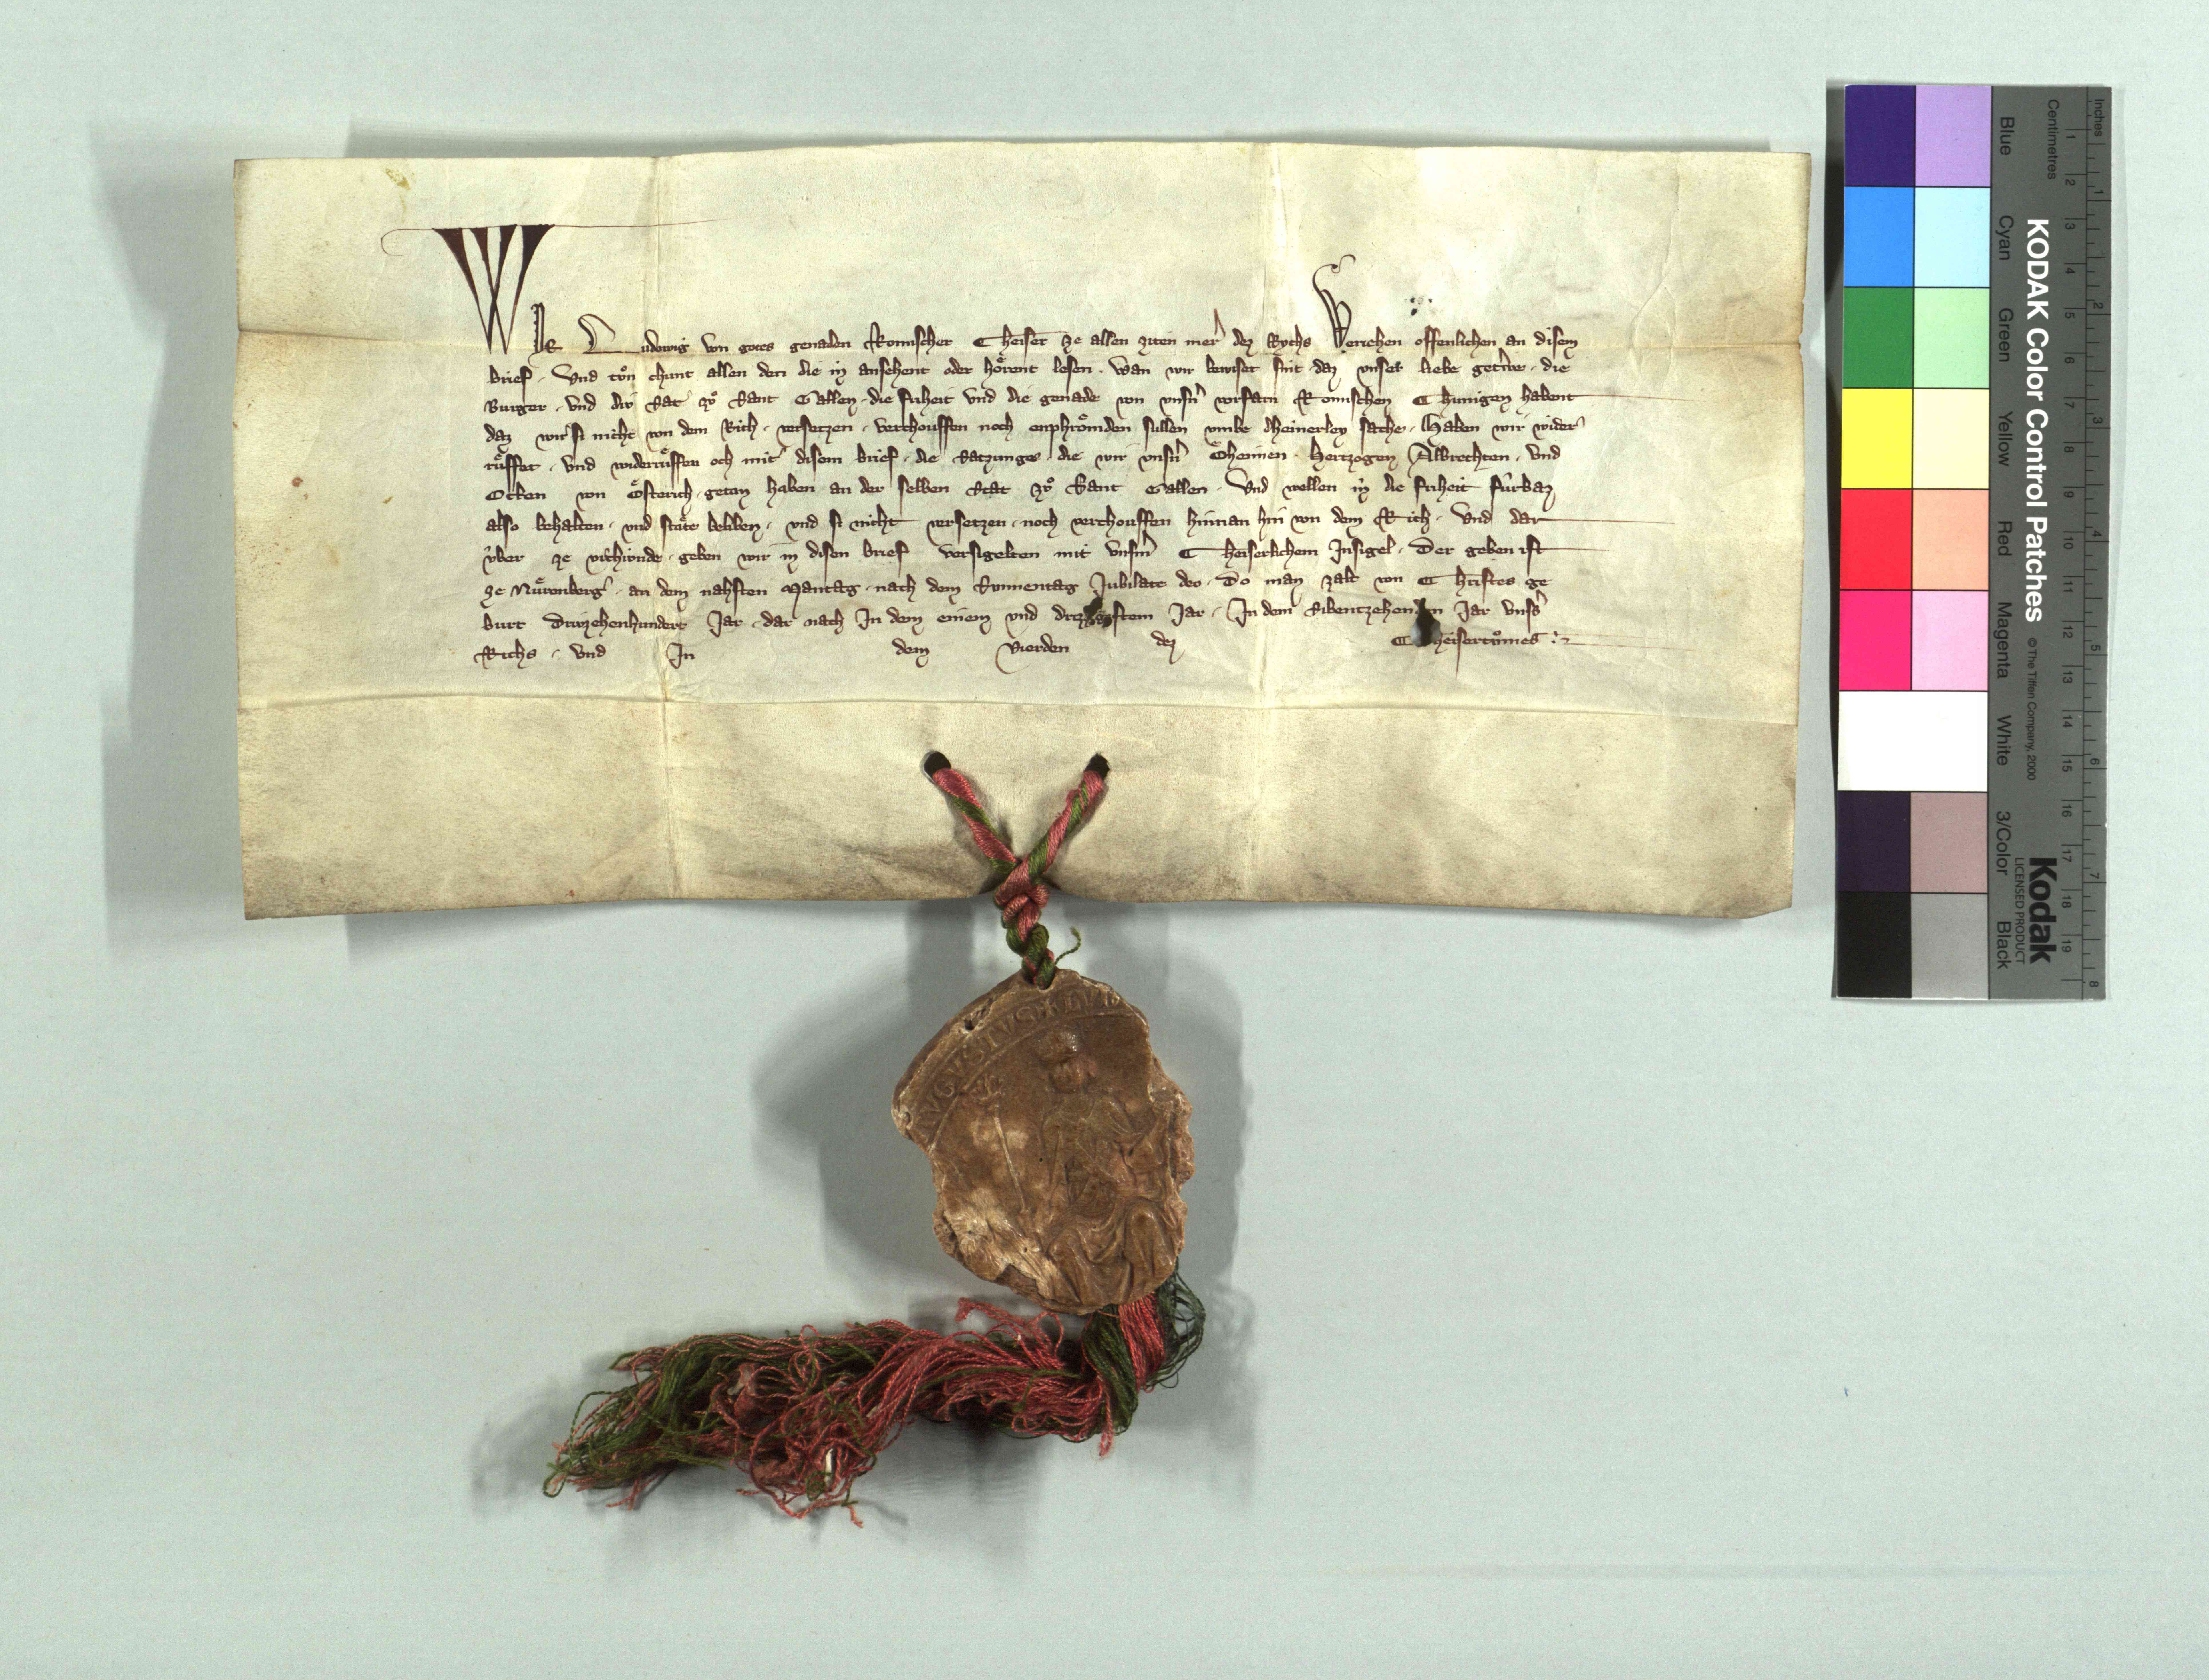 WIr Ludowig von gotes genaden Romischer Cheiser ze allen ziten merer dez Rychs Veriehen offenlichen an disem
brief · Und tůn chunt allen den die in ansehent oder hoͤrent lesen · Wan wir bewiset sint · daz unser liebe getriwe · die
Burger · und der Rat zů Sant Gallen · die friheit und die genade von unsern vorfarn Romischen Chunigen habent
daz wir si nicht von dem Rich · versetzen · verchouffen noch enphroͤmden sullen umbe dheinerley sache · Haben wir wider
ruͤffet · und widerruͤffen och mit disem brief · die Satzunge · die wir unsern Oͤheimen · Hertzogen Albrechten · und
Otten von Oͤsterich · getan haben an der selben Stat zů Sant Gallen · Und wellen in die friheit fürbaz
also behalten · und staͤte beliben · und si nicht versetzen · noch verchouffen hinnan hin von dem Rich · Und dar
über ze urchünde · geben wir in disen brief versigelten mit unserm Cheiserlichem Insigel · Der geben ist
ze Nuͤrenberg · an dem nahsten Mantag · nach dem Sunnentag Jubilate deo · Do man zalt von Christes ge
burt Driuzehenhundert Jar · dar nach In dem einem und drizzigstem Jar · In dem Sibentzehenden Jar unsers
Richs · und In dem Vierden dez Cheisertůmes :~
AVGVSTVS
Inches
Centimetres
KODAK Color Control Patches
© The Tiffen Company, 2000
Kodak
LICENSED PRODUCT
Blue Cyan Green Yellow Red Magenta White 3/Color Black
1 2 3 4 5 6 7 8 9 10 11 12 13 14 15 16 17 18 19
1 2 3 4 5 6 7 8